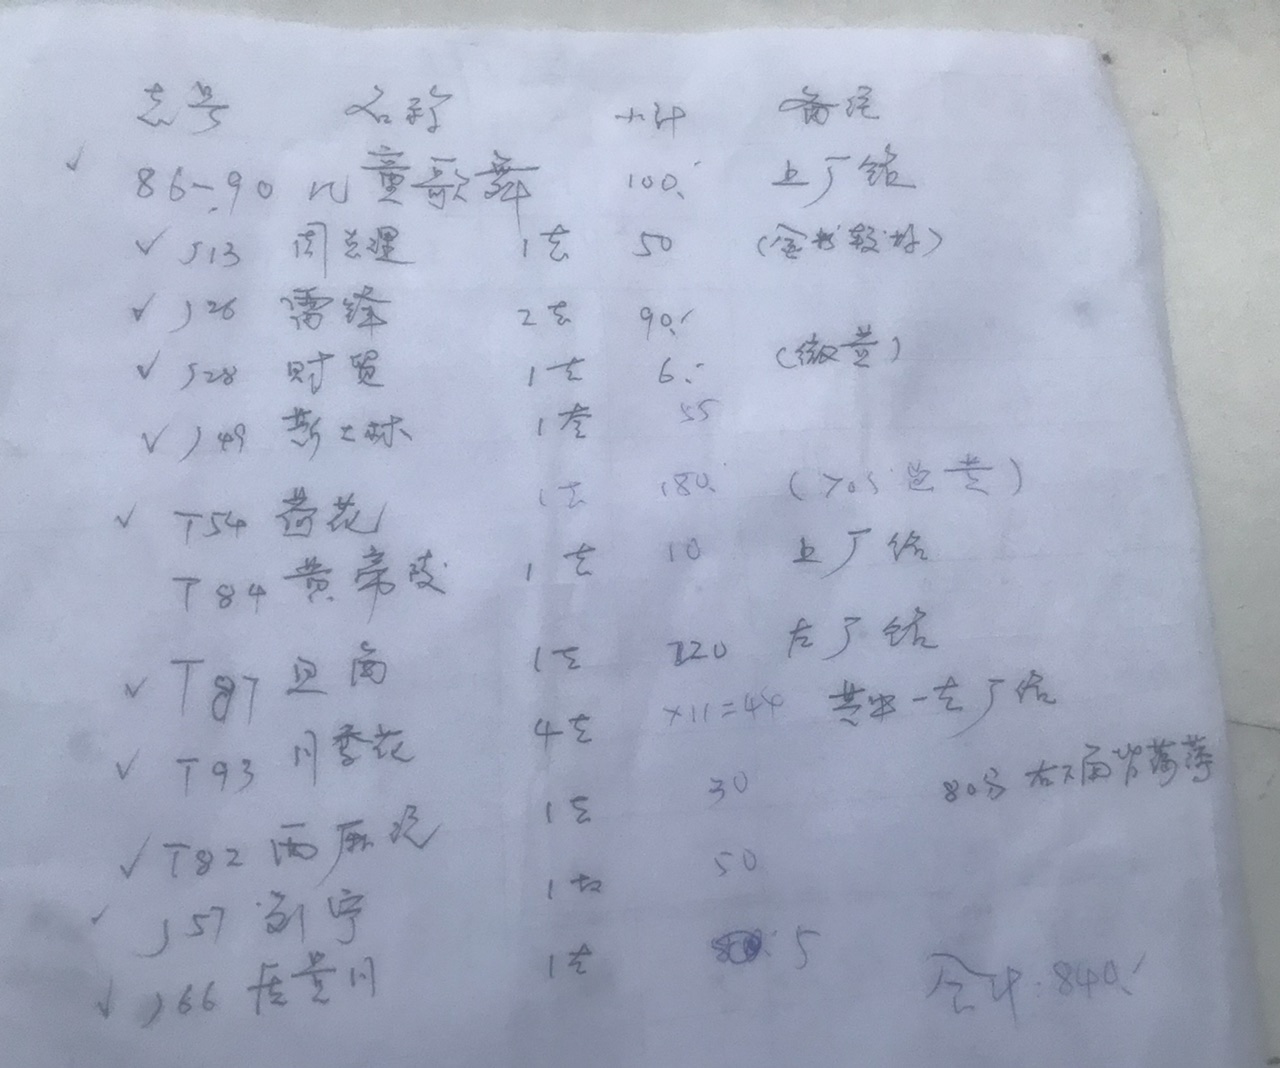 志号 名称 小计 备注
✓ 86-90 儿童歌舞 100. 上厂铭
✓ J13 周总理 1套 50 (金粉较好)
✓ J26 雷锋 2套 90.
✓ J28 财贸 1套 6. (微黄)
✓ J49 斯大林 1套 55
✓ T54 荷花 1套 180. (70分边黄)
T84 黄帝陵 1套 10 上厂铭
✓ T87 京剧 1套 120 左厂铭
✓ T93 月季花 4套 ×11=44 其中一套厂铭
✓ T82 西厢记 1套 30 80分右下角背薄
✓ J57 刘宁 1套 50
✓ J66 1套 5 合计:840.